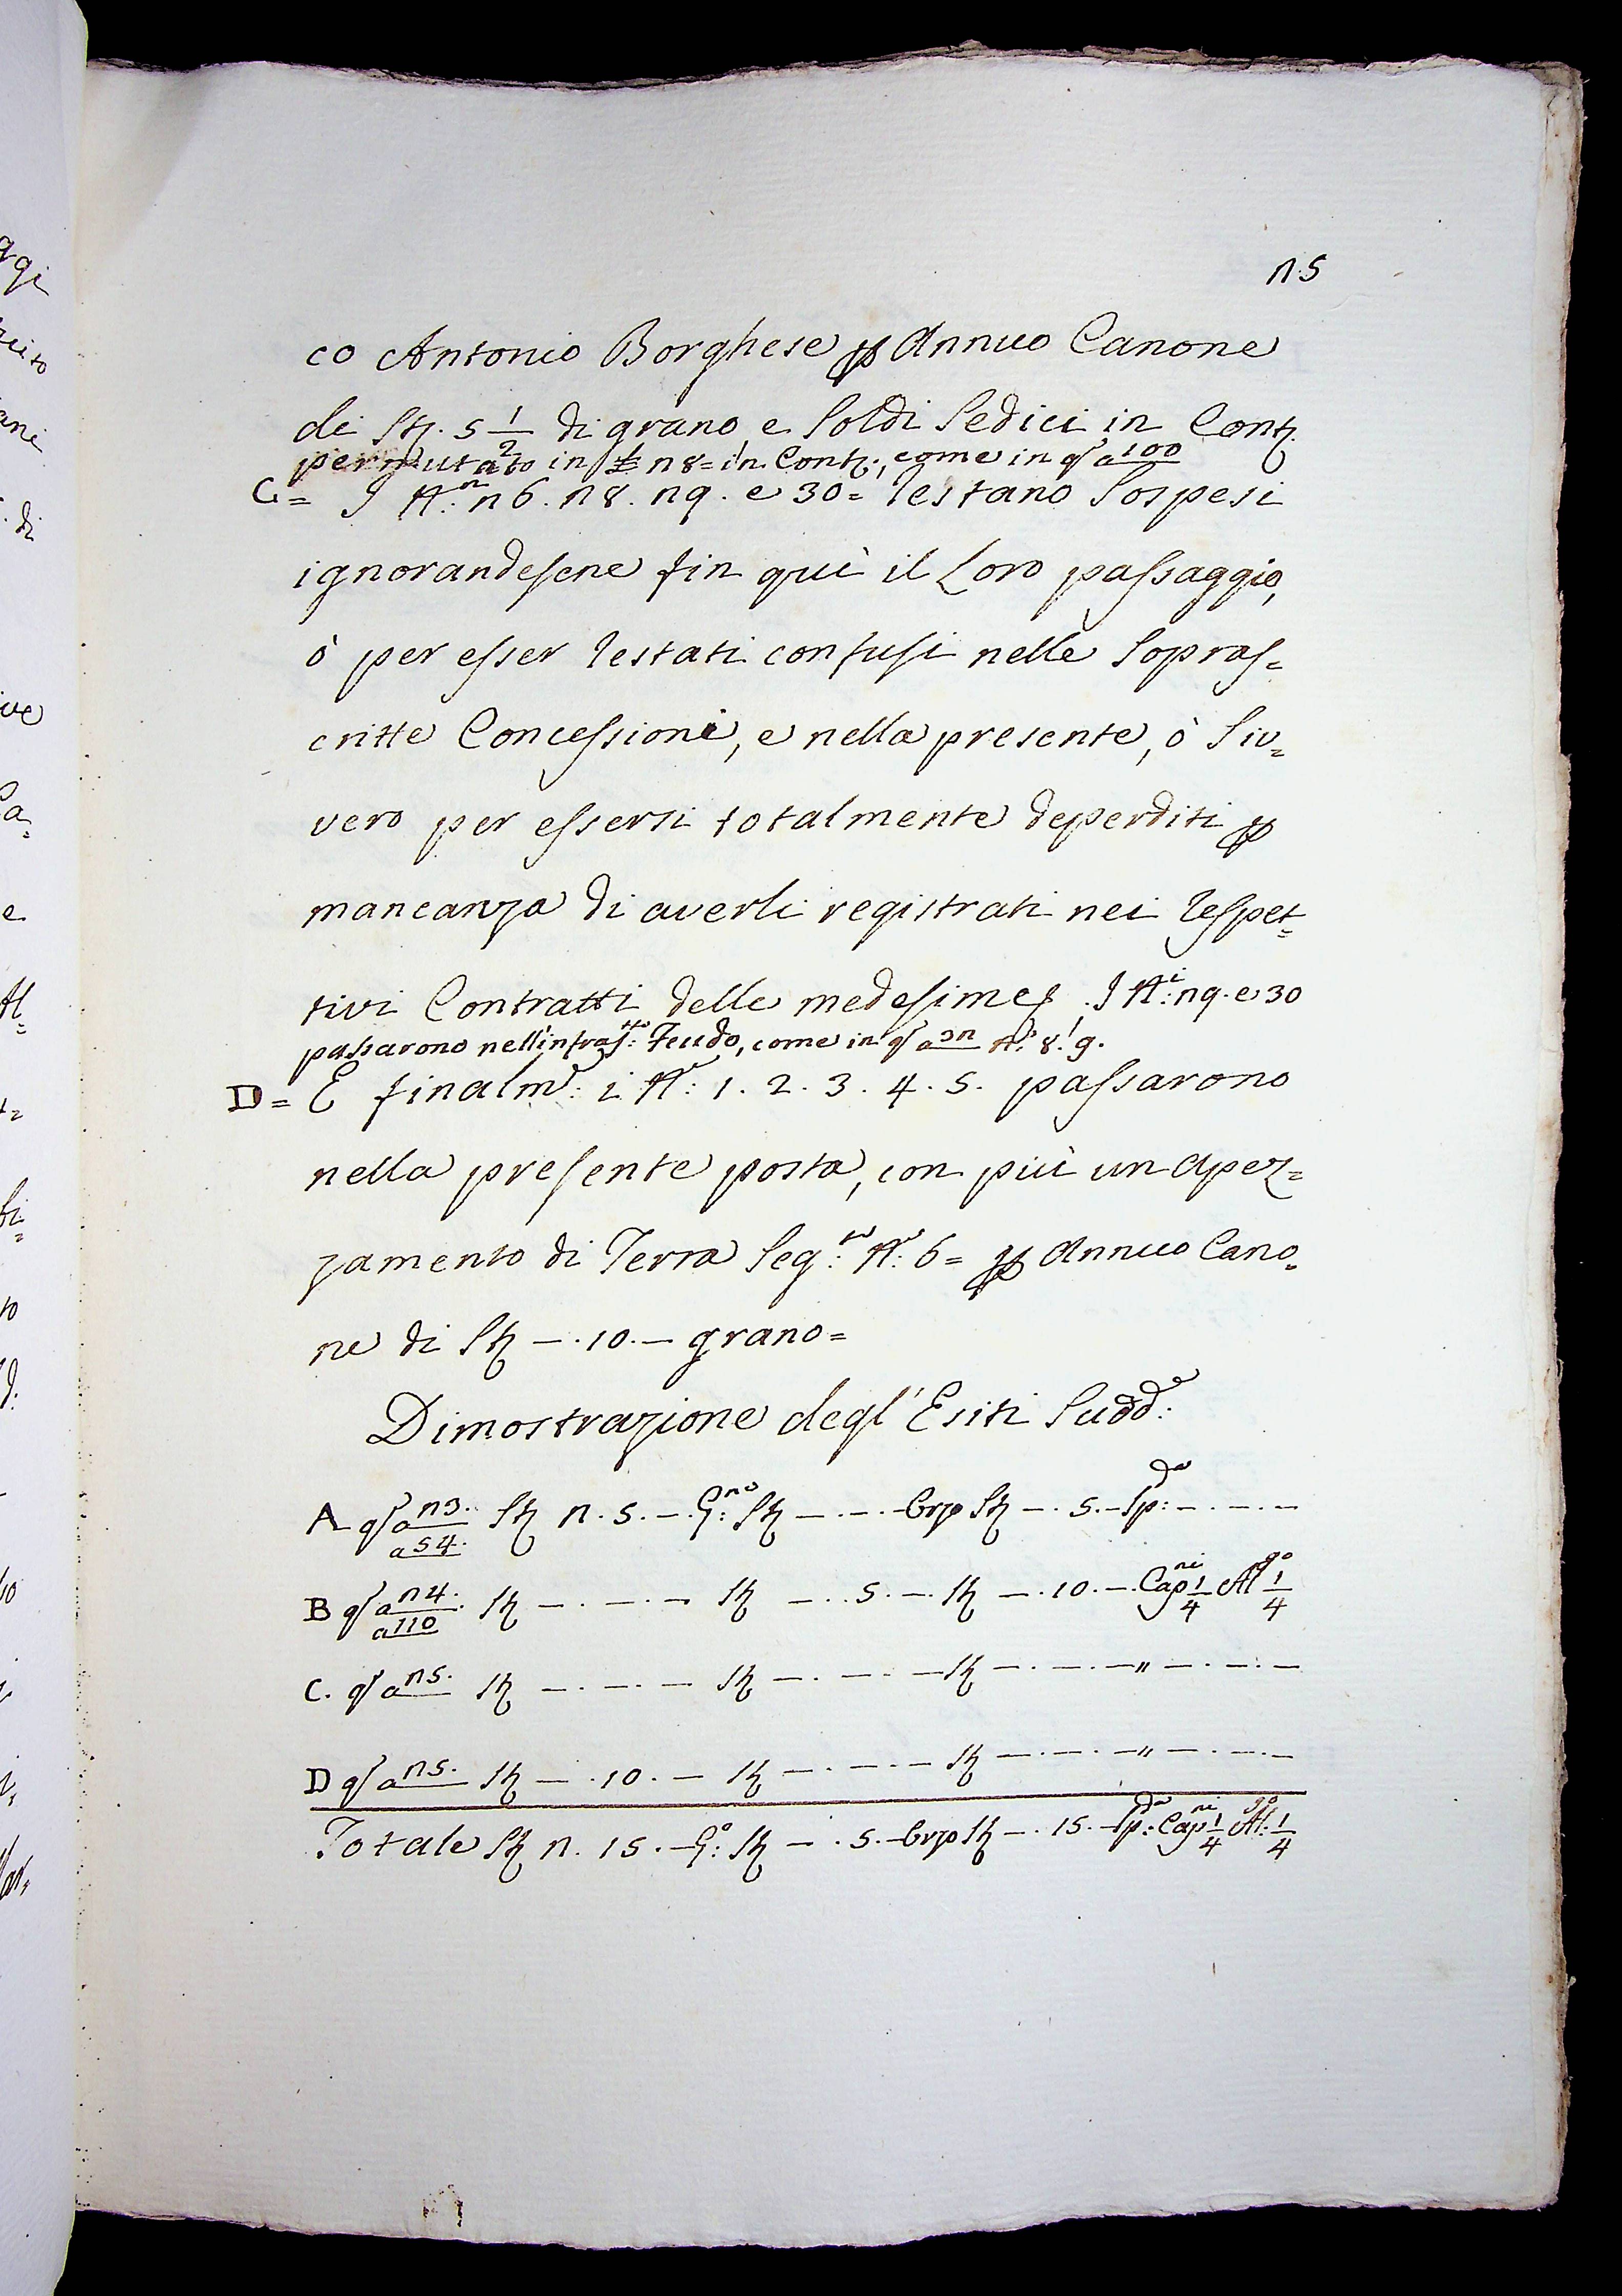 n5
co Antonio Borghese p Annuo Canone
di Stʒ. 5 1/2 di grano, e Soldi Sedici in Contʒ.
permutato in £ n8= in Contʒ:, come in q̃ a 100
C= I N:ri n6. n8. n9. e 30= restano Sospesi
ignorandosene fin quì il Loro passaggio,
ò per esser restati confusi nelle Sopras=
critte Concessioni, e nella presente, ò Siv=
vero per essersi totalmente deperditi p
mancanza di averli registrati nei respet=
tivi Contratti delle medesime. I N:i n9. e 30
passarono nell'infras:tto Feudo, come in q̃ a 3n N:i 8. 9.
D= E finalm:e i N:i 1. 2. 3. 4. 5. passarono
nella presente posta, con più un apez=
zamento di Terra Seg:to N:o 6= p Annuo Cano=
ne di Stʒ —. 10. — grano=
Dimostrazione degl' Esiti Sudd:i
A q̃ a n3. Stʒ n. 5. — G:no Stʒ — . — . — Orzo Stʒ — . 5. — Sp:da — . — . —
a 54.
B q̃ a n4. Stʒ — . — . — Stʒ — . . 5. — Stʒ — . 10. — Cap:ni 1/4 Al:go 1/4
a 110
C. q̃ a n5. Stʒ — . — . — Stʒ — . — . — Stʒ — . — . — " — . — . —
D q̃ a n5. Stʒ — . 10. — Stʒ — . — . — Stʒ — . — . — " — . — . —
Totale Stʒ n. 15. — G:o Stʒ — . 5. — Orzo Stʒ — . 15. — Sp:da Cap:ni 1/4 Al:go 1/4